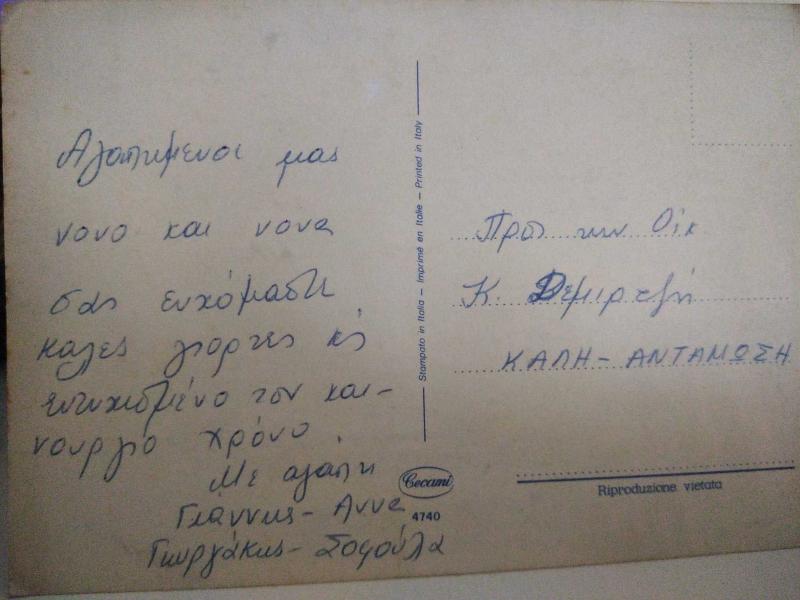 Αγαπημενοι μας
νονο και νονα
σας ευχόμαστε
καλες γιορτες κς
ευτυχισμένο τον και-
νουργιο χρόνο.
Με αγαπη
Γιάννης - Αννα
Γιωργάκης - Σοφούλα
Cecami
4740
Stampato in Italia – Imprimé en Italie – Printed in Italy
Προς την Οίκ
Κ. Δεμιρτζή
ΚΑΛΗ - ΑΝΤΑΜΩΣΗ
Riproduzione vietata